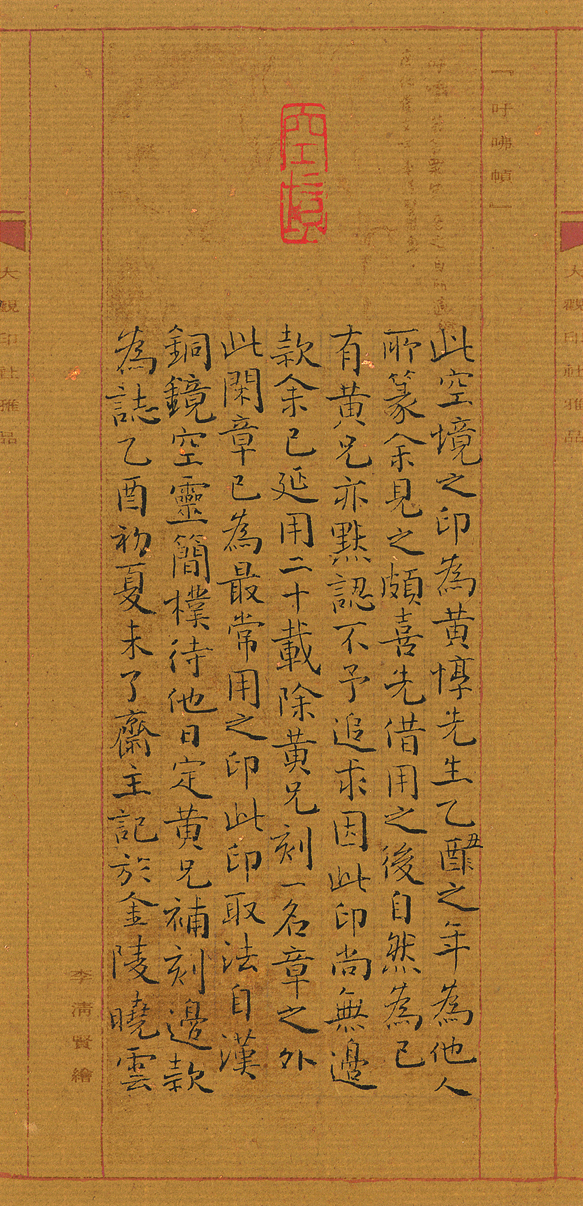 「吁咈頓」
空境
此空境之印為黃惇先生乙酉丑之年為他人
所篆余見之頗喜先借用之後自然為己
有黃兄亦默認不予追求因此印尚無邊
款余已延用二十載除黃兄刻一名章之外
此閑章已為最常用之印此印取法自漢
銅鏡空靈簡樸待他日定黃兄補刻邊款
為誌乙酉初夏未了齋主記於金陵曉雲
李清賢繪
大觀印社雅品
大觀印社雅品